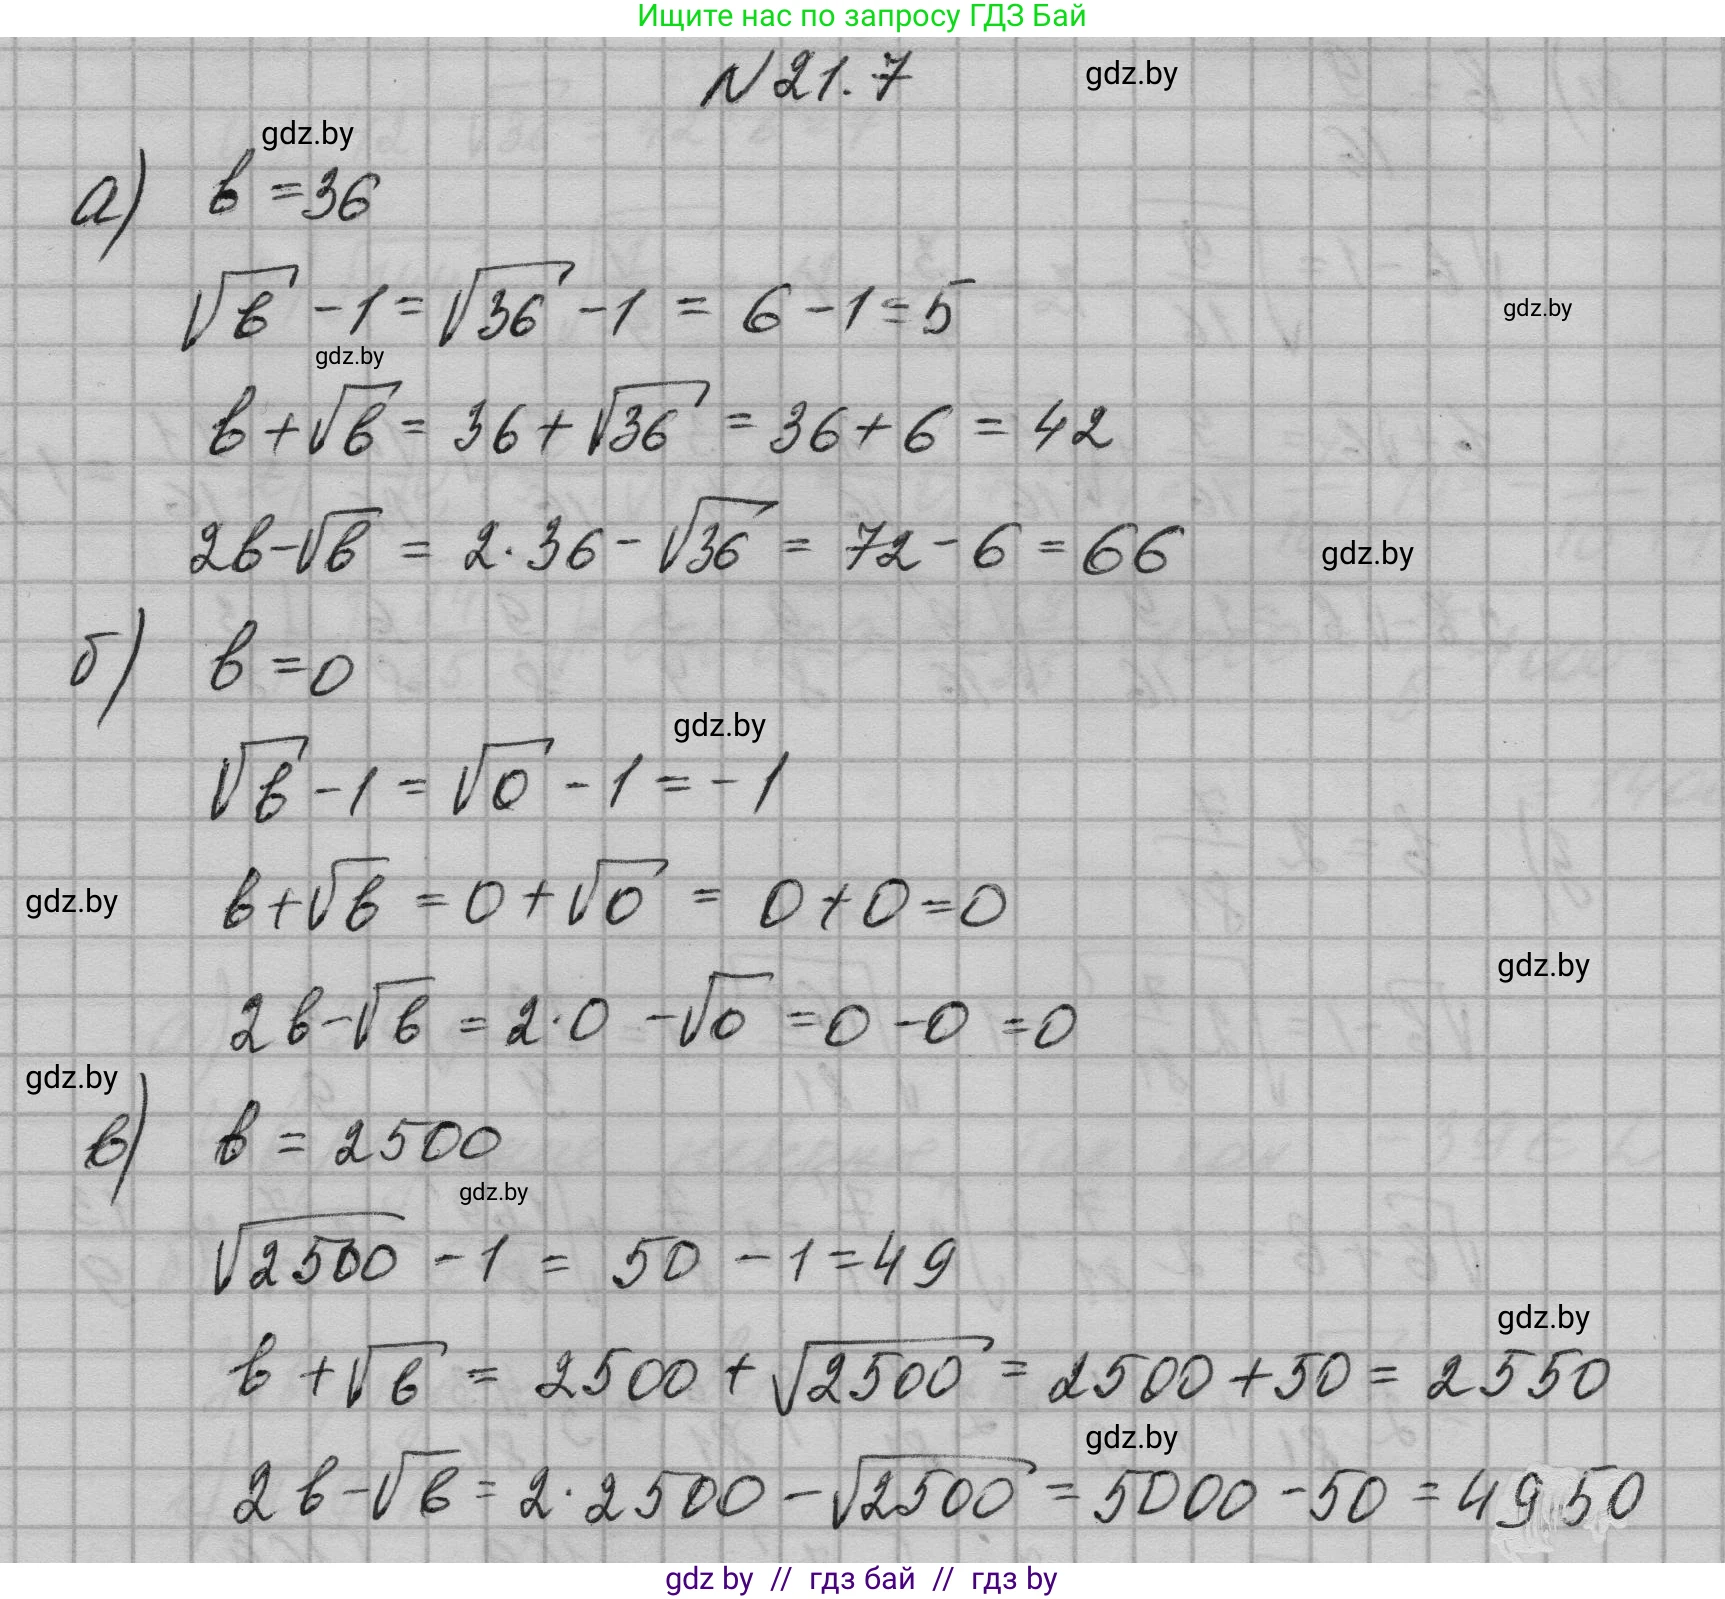 Ищите нас по запросу ГДЗ Бай
N 21.7
gdz.by
gdz.by
а) в = 36
√в - 1 = √36 - 1 = 6 - 1 = 5
gdz.by
gdz.by
в + √в = 36 + √36 = 36 + 6 = 42
2в - √в = 2 · 36 - √36 = 72 - 6 = 66
gdz.by
б) в = 0
gdz.by
√в - 1 = √0 - 1 = - 1
gdz.by
в + √в = 0 + √0 = 0 + 0 = 0
gdz.by
2в - √в = 2 · 0 - √0 = 0 - 0 = 0
gdz.by
в) в = 2500
gdz.by
√2500 - 1 = 50 - 1 = 49
gdz.by
в + √в = 2500 + √2500 = 2500 + 50 = 2550
gdz.by
2в - √в = 2 · 2500 - √2500 = 5000 - 50 = 4950
gdz by // гдз бай // гдз by